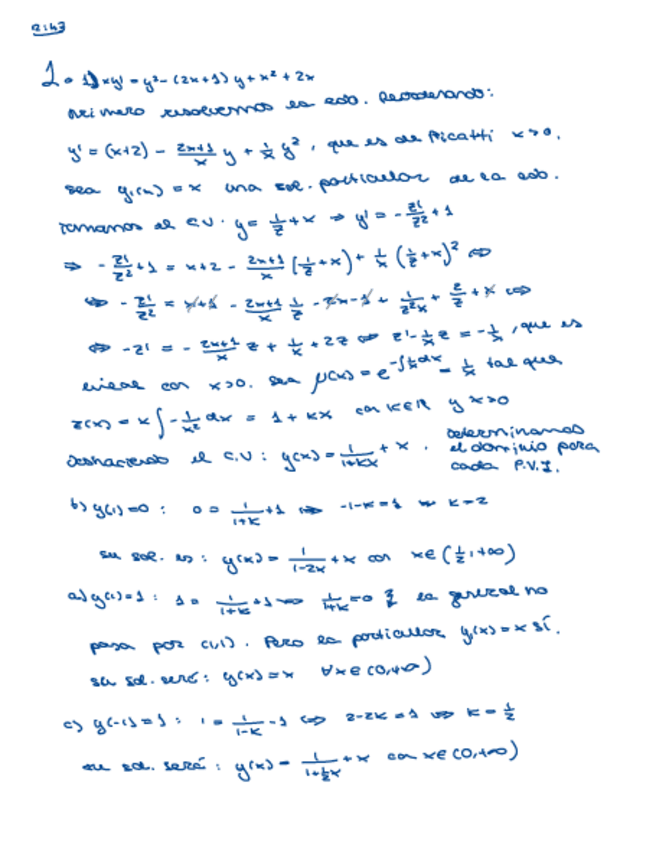 2:43
1. 1) xy' = y² - (2x+1)y + x² + 2x
Primero resolvemos la edo. Reordenando:
y' = (x+2) - \frac{2x+1}{x} y + \frac{1}{x} y², que es de Ricatti x>0.
Sea y₁(x) = x una sol. particular de la edo.
Tomamos el C.V. y = \frac{1}{z} + x ⇒ y' = -\frac{z'}{z²} + 1
⇒ -\frac{z'}{z²} + 1 = x+2 - \frac{2x+1}{x} (\frac{1}{z} + x) + \frac{1}{x} (\frac{1}{z} + x)² ⇔
⇔ -\frac{z'}{z²} = x+1 - \frac{2x+1}{x} \frac{1}{z} - 2x - 1 + \frac{1}{z²x} + \frac{2}{z} + x ⇔
⇔ -z' = -\frac{2x+1}{x} z + \frac{1}{x} + 2z ⇔ z' - \frac{1}{x} z = -\frac{1}{x}, que es
lineal con x>0. Sea μ(x) = e^{-∫\frac{1}{x}dx} = \frac{1}{x} tal que
z(x) = x ∫ -\frac{1}{x²} dx = 1 + kx con k∈ℝ y x>0
Deshaciendo el C.V: y(x) = \frac{1}{1+kx} + x. Determinamos
el dominio para
cada P.V.I.
b) y(1)=0 : 0 = \frac{1}{1+k} + 1 ⇔ -1-k=1 ⇔ k=-2
su sol. es: y(x) = \frac{1}{1-2x} + x con x∈(\frac{1}{2}, +∞)
a) y(1)=1 : 1 = \frac{1}{1+k} + 1 ⇔ \frac{1}{1+k} = 0 ∄ la general no
pasa por (1,1). Pero la particular y₁(x) = x sí.
su sol. será: y(x) = x ∀x∈(0,+∞)
c) y(-1)=1 : 1 = \frac{1}{1-k} - 1 ⇔ 2-2k=1 ⇔ k = \frac{1}{2}
su sol. será: y(x) = \frac{1}{1+\frac{1}{2}x} + x con x∈(0,+∞)